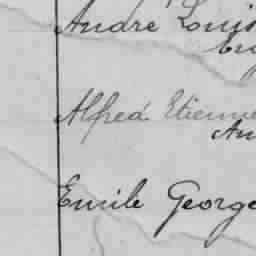 André Louis
Alfred Etienne
An
Emile George